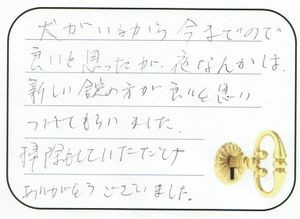 犬がいるから今までので
良いと思ったが、夜なんかは、
新しい錠の方が良いと思い
つけてもらいました。
掃除もしていただけ
ありがとうございました。